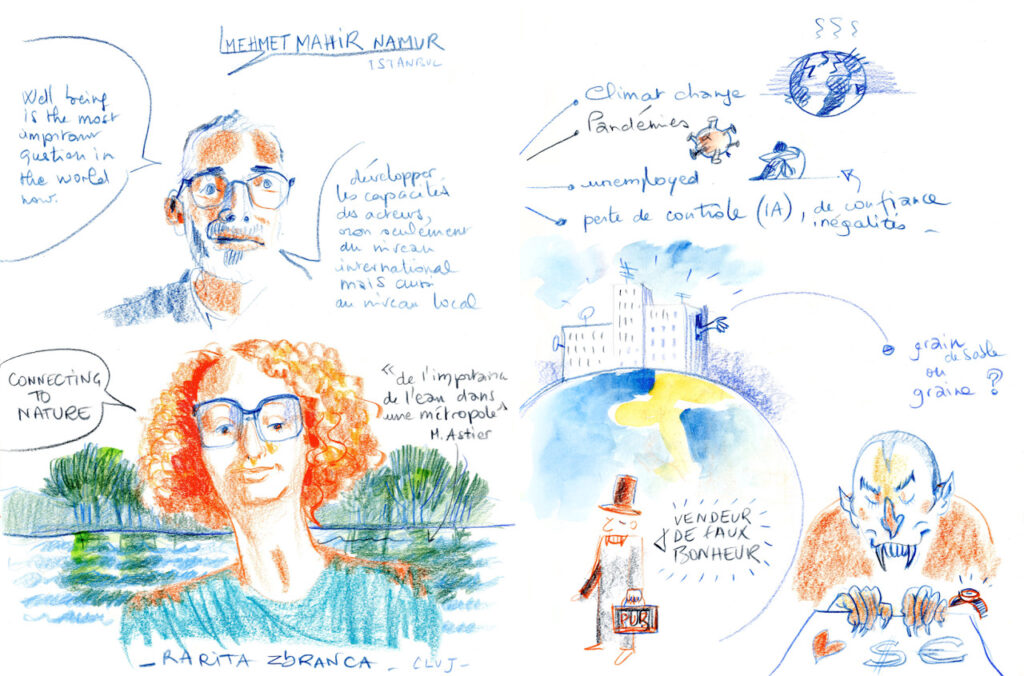 MEHMET MAHIR NAMUR
ISTANBUL
Well being
is the most
important
question in
the world
now.
développer
les capacités
des acteurs,
non seulement
du niveau
international
mais aussi
au niveau local
CONNECTING
TO
NATURE
"de l'importance
de l'eau dans
une métropole"
M. Astier
- RARITA ZBRANCA - CLUJ -
Climat change
Pandémies
unemployed
perte de contrôle (IA), de confiance
inégalités -
grain
de sable
ou
graine ?
VENDEUR
DE FAUX
BONHEUR
PUB
$ €